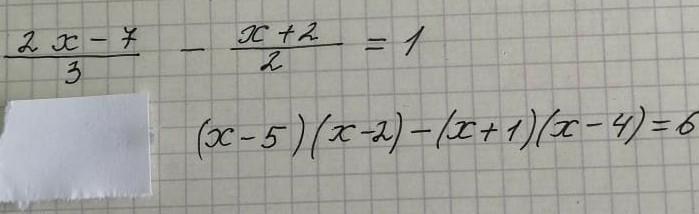 (2x-7)/3 - (x+2)/2 = 1
(x-5)(x-2)-(x+1)(x-4)=6